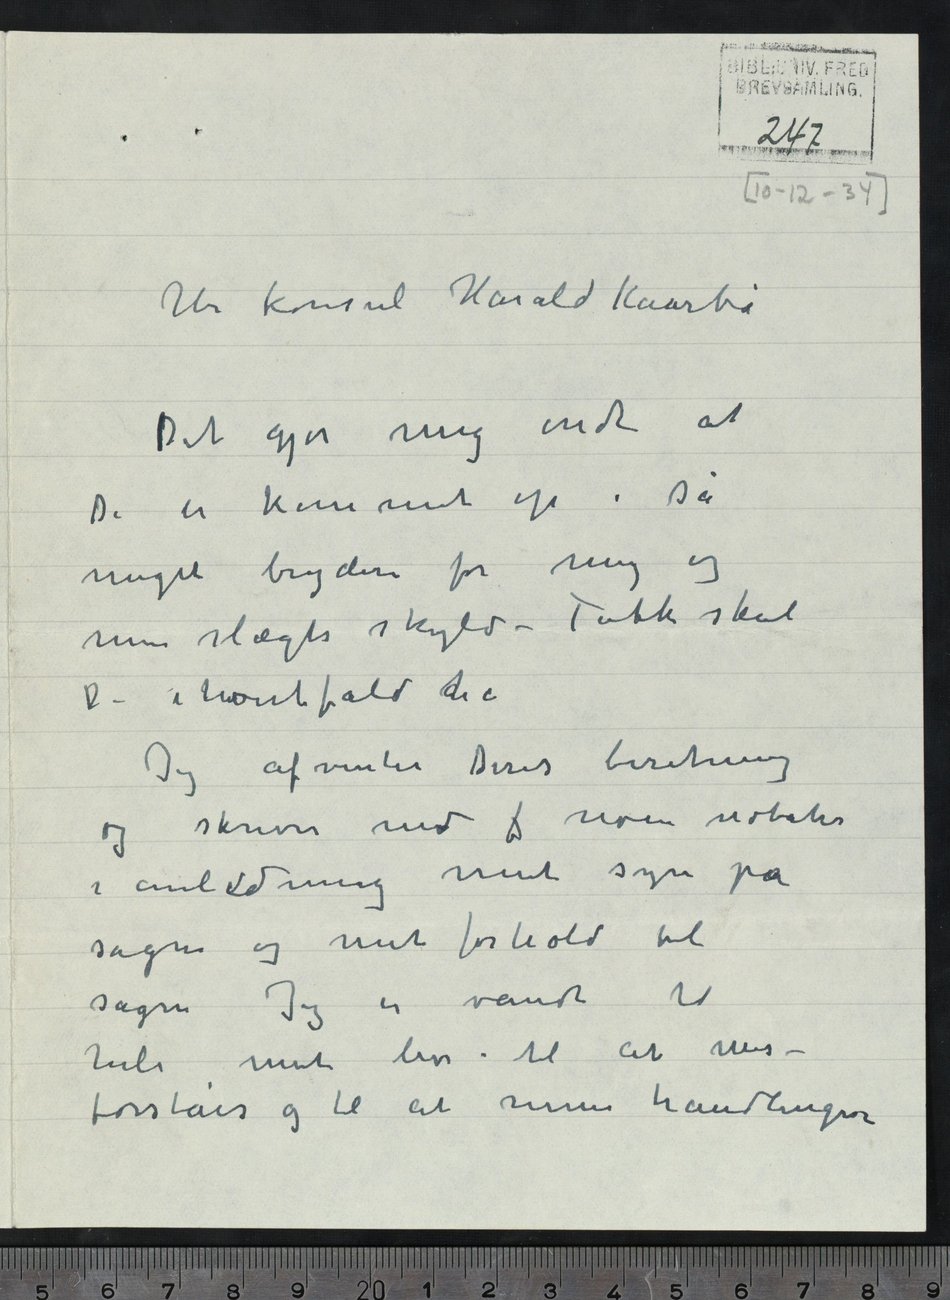 BIBL. UNIV. FRED
BREVSAMLING.
247
[10-12-34]
Hr konsul Harald Kaarbø
Det gjør mig ondt at
De er kommet op i så
meget bryderi for mig og
min slægts skyld – Takk skal
De i hvertfald ha
Jeg afventer Deres beretning
og skriver ned nogen notater
i anledning mit syn på
sagen og mit forhold til
sagen Jeg er vandt
hele mit liv til at mis-
forståes og til at mine handlinger
5 6 7 8 9 20 1 2 3 4 5 6 7 8 9